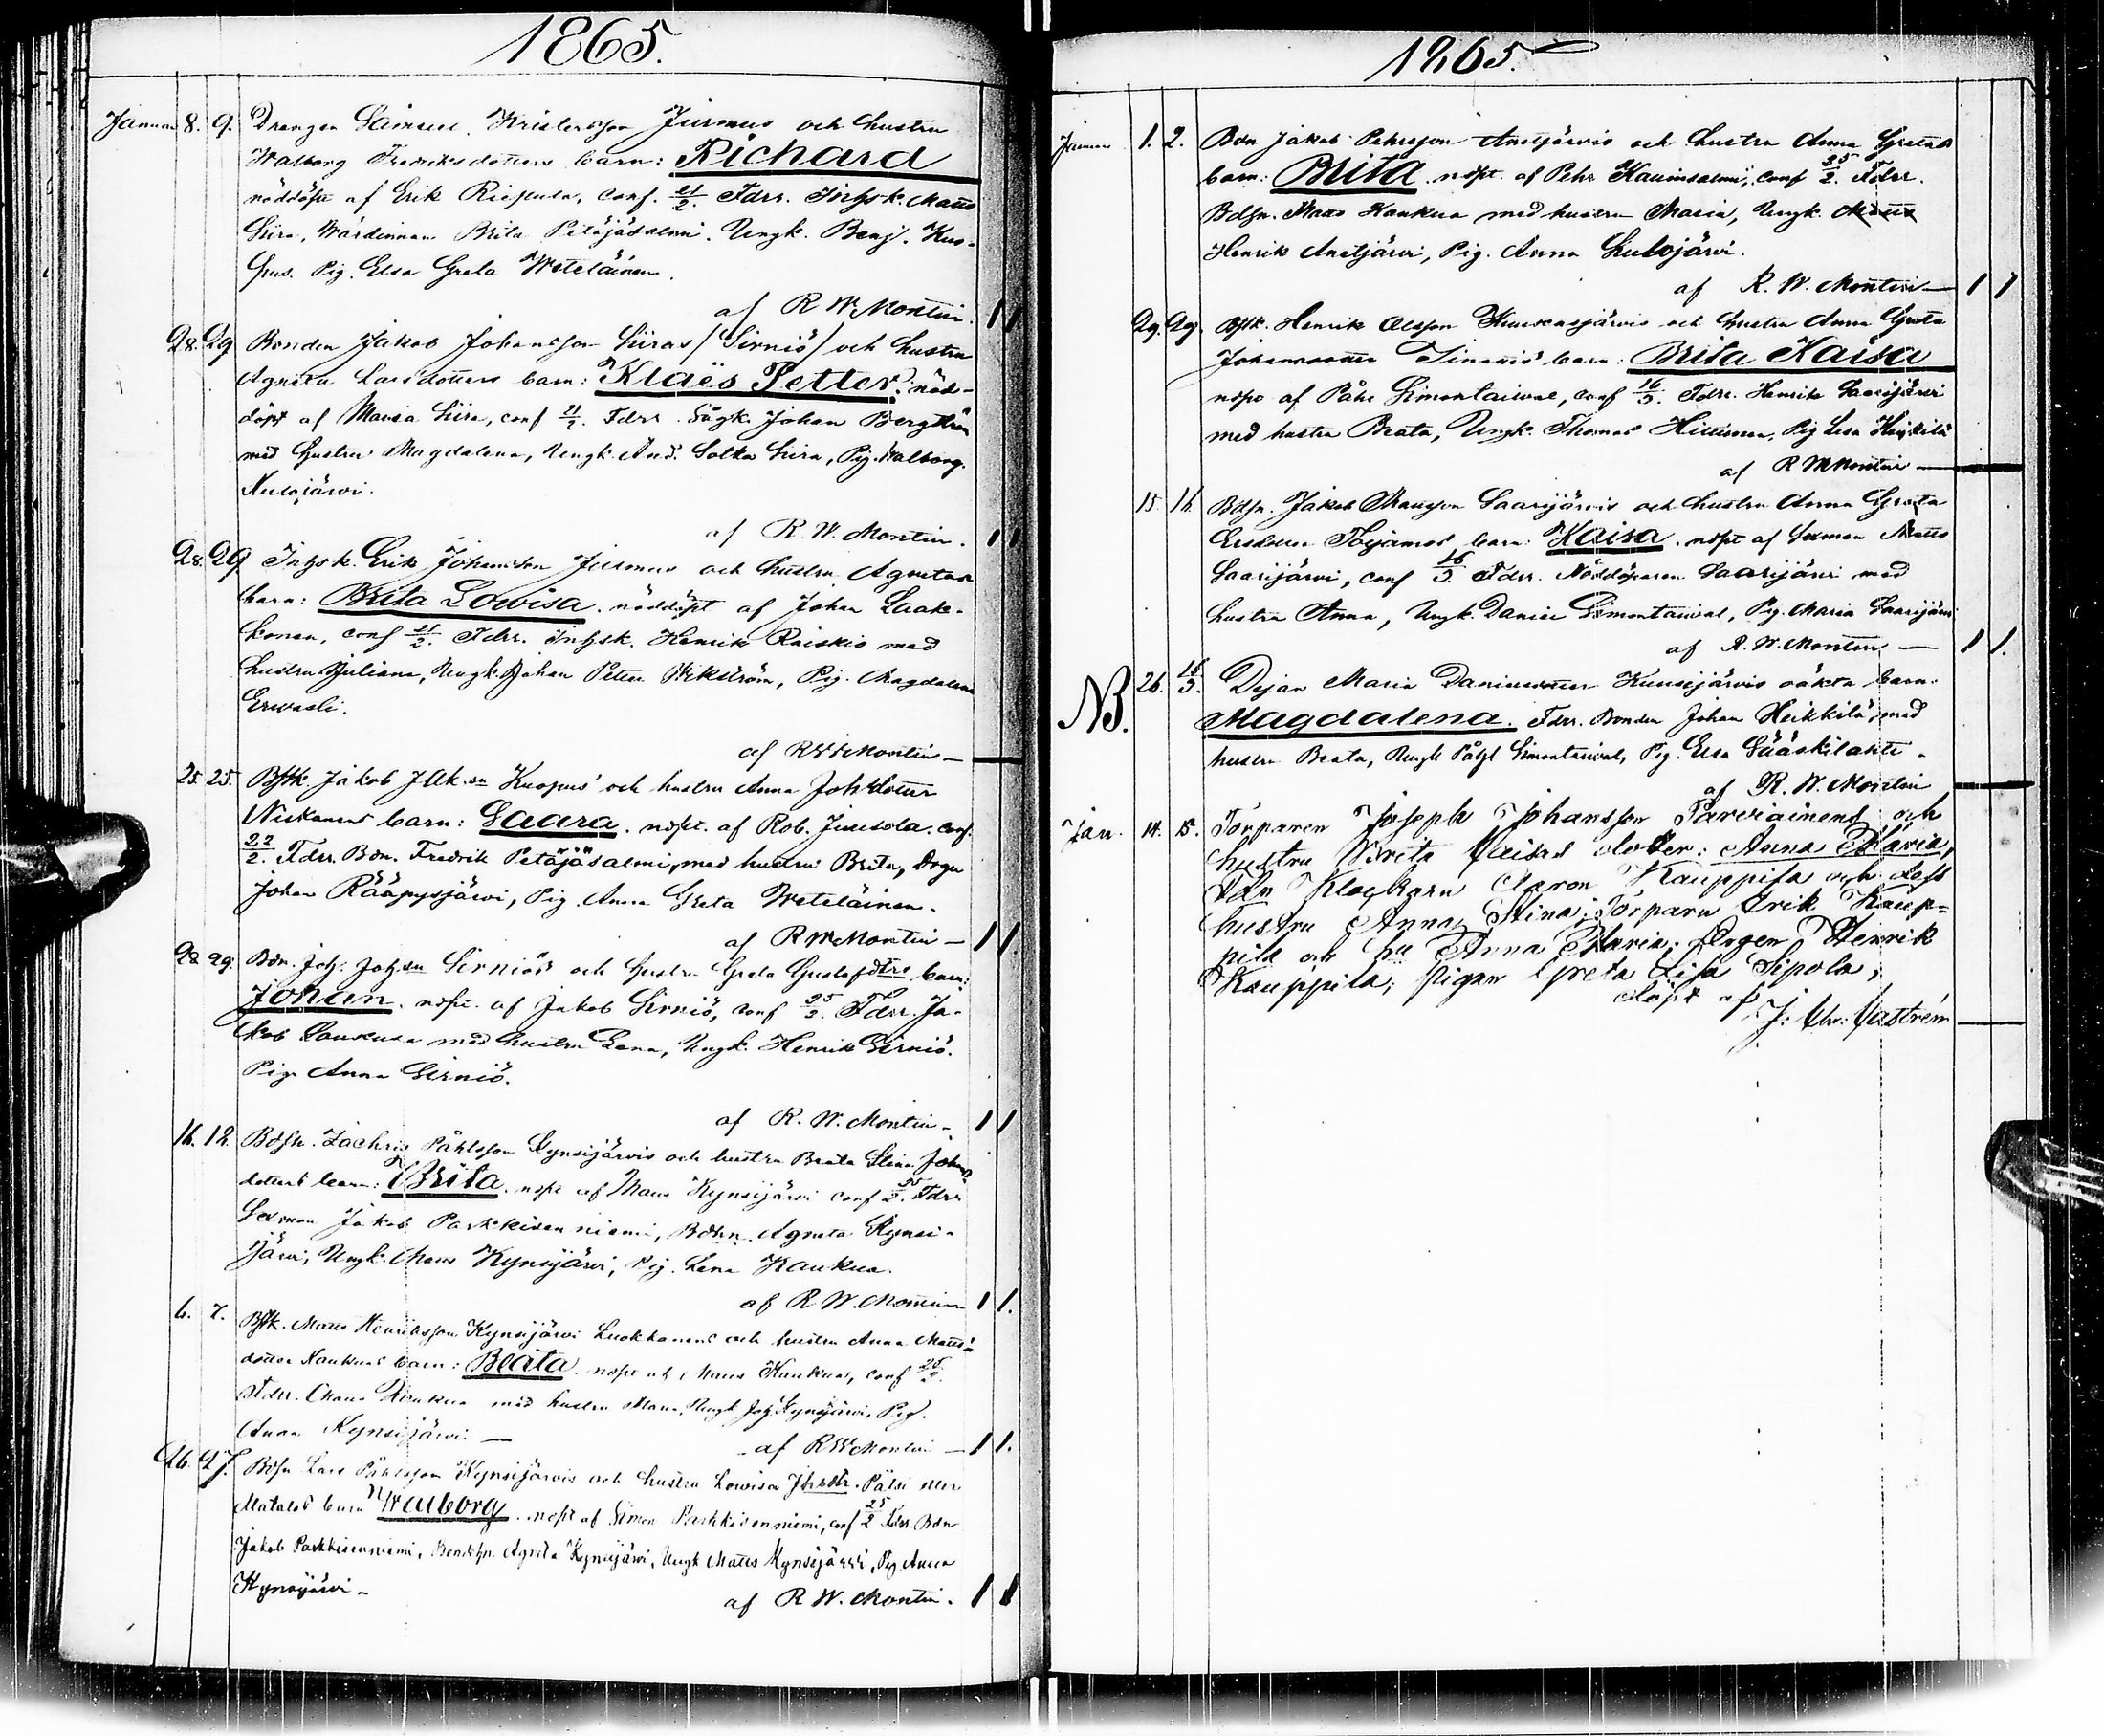 1865.
Januari 8. 9. Drengen Samuel Kristersson Jurmus och hustru
Walborg Fredriksdotters barn: Richard
nöddöpt af Erik, conf. 21/2. Fdrr. Inhsk. Matts
Siira, Wärdinnan Brita Petäjäsalmi. Ungk. Benj. Kuo-
pus. Pig. Elsa Greta Weteläinen.
af R W Montin. 1 1
28. 29 Bonden Jakob Johansson Siiras / Sirniö / och hustru
Agneta Larsdotters barn: Klaës Petter. nöd-
döpt af Maria Siira, conf 21/2. Fdrr. Johan Bergström
med hustru Magdalena, Ungk. And. Lotka Siira, Pig. Walborg
Kulojärvi.
af R. W. Montin. 1 1
28. 29 Inhsk. Erik Johansson Jurmus och hustru Agnetas
barn: Brita Lowisa. nöddöpt af Johan Laak-
konen, conf 21/2. Fdrr. Inhsk. Henrik Raiskio med
hustru Juliana, Ungk. Johan Petter Wikström, Pig. Magdalena
Erwasti.
af R W Montin —
25. 25. Bstk. Jakob Jak.sn Kuopus' och hustru Anna Joh.dotter
Niskanens barn: Saara. nöpt. af Rob. Jurisola. conf.
22/2. Fdrr. Bdn. Fredrik Petäjäsalmi, med hustru Brita, Drgn
Johan Rääpysjärvi, Pig. Anna Greta Weteläinen.
af R W Montin — 1 1
28 29. Bdn. Joh. Joh.sn Sirniös och hustru Greta Gustafdtrs barn:
Johan. nöpt. af Jakob Sirniö, conf 25/2. Fdrr. Ja-
kob Laukusa med hustru Lena, Ungk. Henrik Sirniö.
Pig. Anna Sirniö.
af R. W. Montin - 1 1
16. 18. Bdsn. Zachris Påhlsson Kynsijärvis och hustru Beata Stina Johans
dotters barn: Brita. nöpt af Maus Kynsijärvi conf 25/2. Fdrr
Sexman Jakob Parkkisenniemi, Bdhn. Agneta Kynsi-
järvi, Ungk. Maus Kynsijärvi, Pig. Lena Kaukua.
af R W. Montin 1 1.
6. 7. Bstk. Matts Henriksson Kynsijärvi Luokkanens och hustru Anna Matts-
dotter Kaukuas barn: Beata. nöpt af Maus Kaukua, conf 25/2.
Fdrr. Maus Kaukua med hustru Maria, Ungk Joh. Kynsijärvi, Pig.
Anna Kynsijärvi. —
af R W Montin — 1 1.
26. 27. Bdsn Lars Påhlsson Kynsijärvis och hustru Lowisa Jhsdtr. Pätsi eller
Matalas barn Walborg. nöpt af Simon Parkkisenniemi, conf 25/2 Fdrr. Bdn
Jakob Parkkisenniemi, Bondehn. Agneta Kynsijärvi, Ungk Matts Kynsijärvi, Pig Anna
Kynsijärvi -
af R W. Montin. 1 1
1865.
Januari 1. 2. Bdn Jakob Pehrsson Anetjärvis och hustru Anna Gretas
barn: Brita. nöpt. af Pehr Kauinsalmi, conf 25/2. Fdrr.
Bdsn. Maus Kaukua med hustru Maria, Ungk.
Henrik Anetjärvi, Pig. Anna Kulojärvi.
af R. W. Montin — 1 1
29. 29. Bstk. Henrik Olsson Kuusijärvis och hustru Anna Greta
Johansdotter barn: Brita Kaisa
nöpt af Påhl Simontaival, conf 16/3. Fdrr. Henrik Saarijärvi
med hustru Beata, Ungk. Thomas, Pig Lisa Heikkilä
af R W Montin —
15. 16. Bdsn. Jakob Mausson Saarijärvis och hustru Anna Greta
Ersdotter Töyämös barn: Kaisa. nöpt af Sexman Matts
Saarijärvi, conf 16/3. Fdrr. Nöddöparen Saarijärvi med
hustru Anna, Ungk. Daniel Simontaival, Pig. Maria Saarijärvi
af R. W. Montin — 1 1.
NB. 26. 16/3. Dejan Maria Danielsdotter Kuusijärvis oäkta barn.
Magdalena. Fdrr. Bonden Johan Heikkilä, med
hustru Beata, Ungk Påhl Simontaival, Pig. Elsa Sääskilahti.
af R. W. Montin
Jan. 14. 15. Torparen Joseph Johansson Parviainens och
hustru Brita Kaisas dotter: Anna Maria,
Vdn Klockarn Aaron Kauppila och dess
hustru Anna Stina; Torparn Erik Kaup=
pila och hu Anna Maria; Drgen Henrik
Kauppila; pigan Greta Lisa Sipola;
döpt af
J: Chr: Castrén